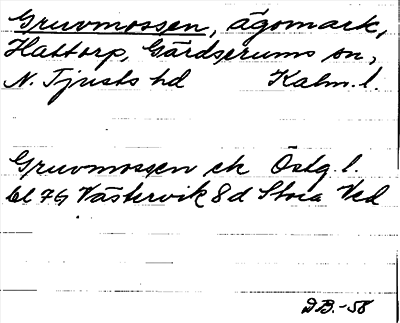 Gruvmossen, ägomark,
Hattorp, Gärdserums sn,
N. Tjusts hd Kalm. l.
Gruvmossen ek Östg. l.
bl 7G Västervik 8d Stora Ved
DB.-58